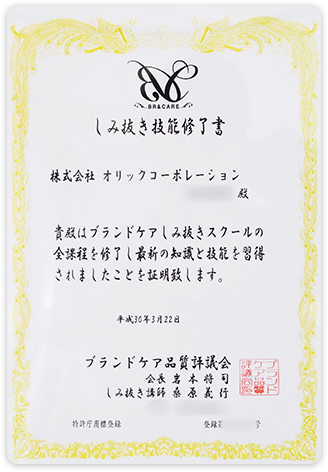 BR&CARE
しみ抜き技能修了書
株式会社 オリックコーポレーション
殿
貴殿はブランドケアしみ抜きスクールの
全課程を修了し最新の知識と技能を習得
されましたことを証明致します。
平成30年3月22日
ブランドケア品質評議会
会長 岩本将司
しみ抜き講師 桑原義行
ブランド
ケア品質
評議会印
特許庁商標登録 登録第 号